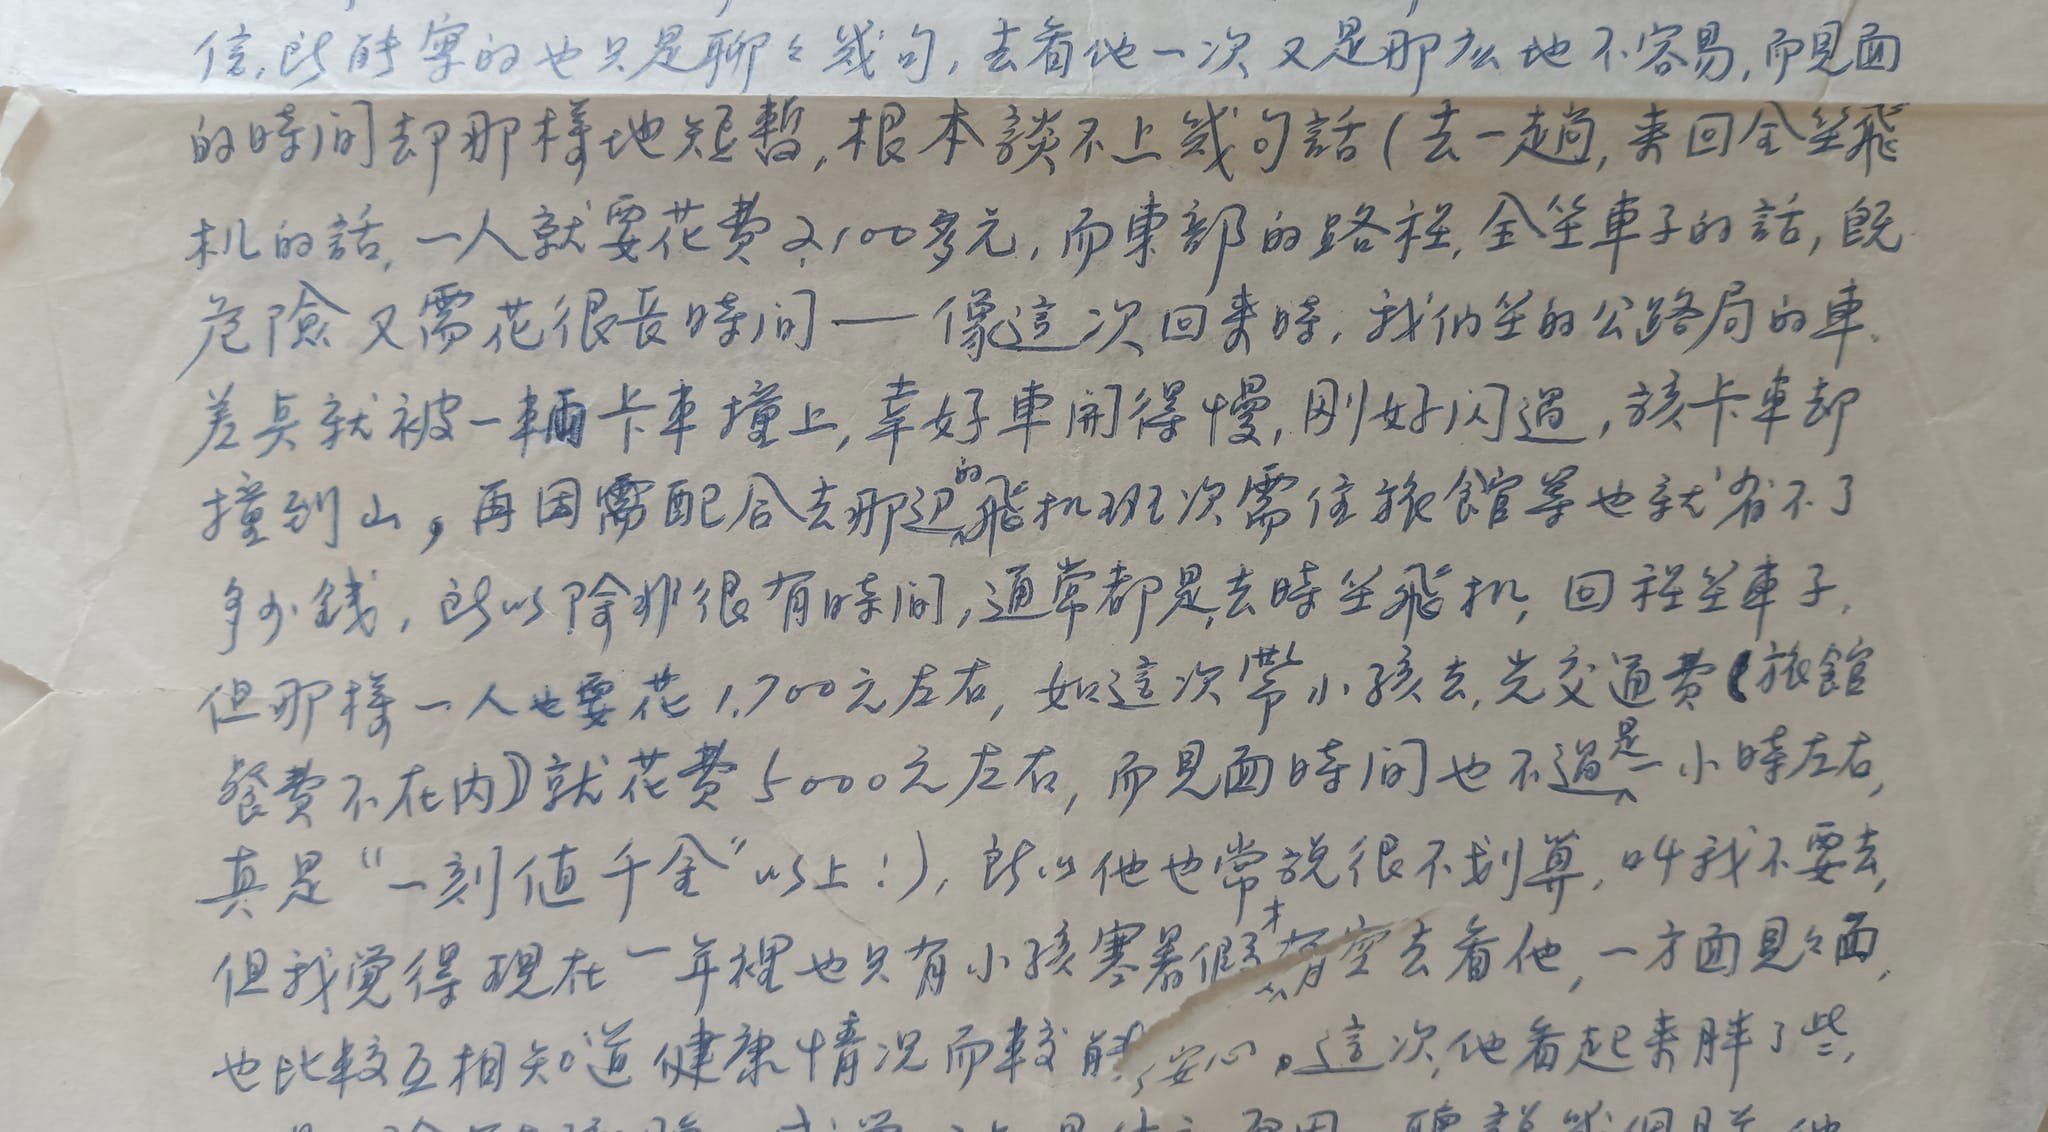 信,所能寫的也只是聊々幾句,去看他一次又是那麽地不容易,而見面
的時间却那様地短暫,根本談不上幾句話(去一趟,来回全坐飛
机的話,一人就要花費2,100多元,而東部的路程,全坐車子的話,既
危險又需花很長時间——像這次回来時,我们坐的公路局的車,
差点就被一輛卡車撞上,幸好車開得慢,刚好闪過,該卡車却
撞到山,再因需配合去那边的飛机班次需住旅館等也就省不了
多少錢,所以除非很有時间,通常都是去時坐飛机,回程坐車子,
但那様一人也要花1,700元左右,如這次帶小孩去,光交通費(旅館
餐費不在内)就花費5000元左右,而見面時间也不過是一小時左右,
真是“一刻值千金”以上!),所以他也常說很不划算,叫我不要去,
但我覚得現在一年裡也只有小孩寒暑假才有空去看他,一方面見々面,
也比較互相知道健康情况而較能安心。這次,他看起来胖了些,